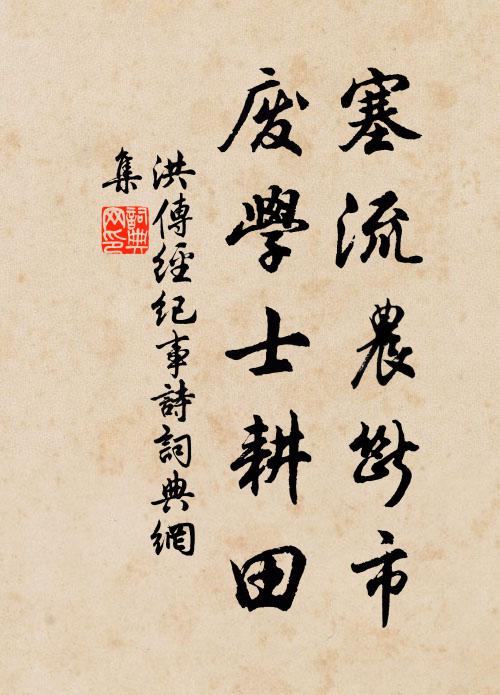 塞流農斷市
廢學士耕田
洪傳經紀事詩詞典網
集
詞典網印